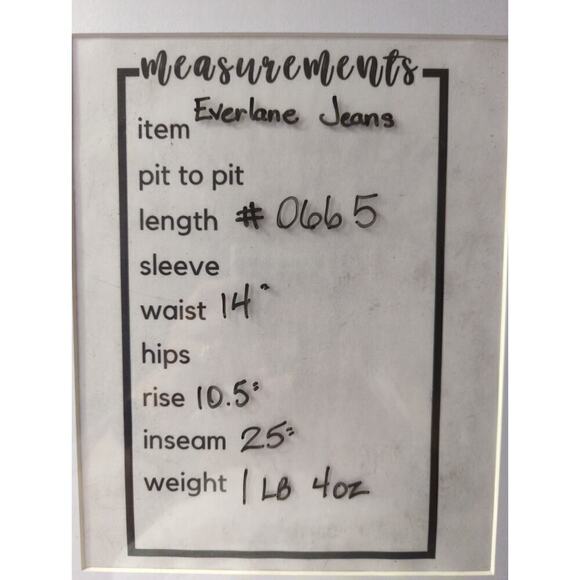 measurements
item Everlane Jeans
pit to pit
length # 0665
sleeve
waist 14"
hips
rise 10.5"
inseam 25"
weight 1 LB 4oz